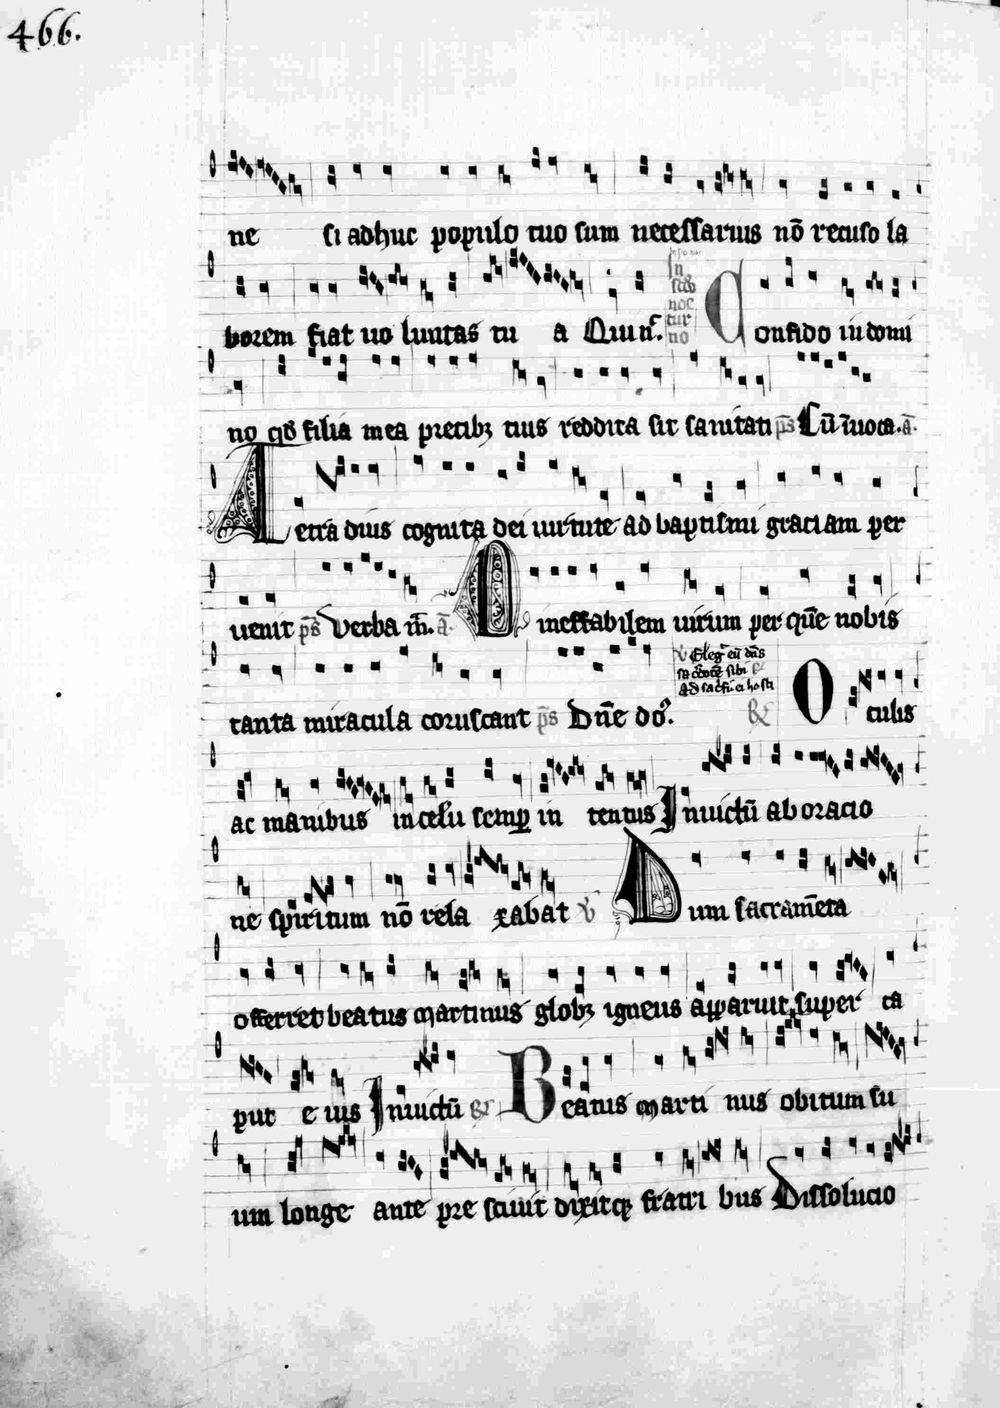 466.
ne si adhuc populo tuo sum necessarius nō recuso la
borem fiat uo luntas tu a Quin.
In
scdo
noc
tur
no
Confido in domi
no qd filia mea precibz tuis reddita sit sanitati ps Cū īuoca. ā.
Tetra diuis cognita dei uirtute ad baptismi graciam per
uenit ps Verba m. ā. O ineffabilem uirum per quē nobis
tanta miracula coruscant ps Dñe do.
℣ Eleg eū dns
sacdotē sibi
Ad sacfi. ei hosti
℟ Oculis
ac manibus in celu semp in tentus Inuictū ab oracio
ne spiritum nō rela xabat ℣ Dum sacramēta
offerret beatus martinus globz igneus apparuit super ca
put e ius Inuictū ℟ Beatus marti nus obitum su
um longe ante pre sciuit dixitqz fratri bus Dissolucio